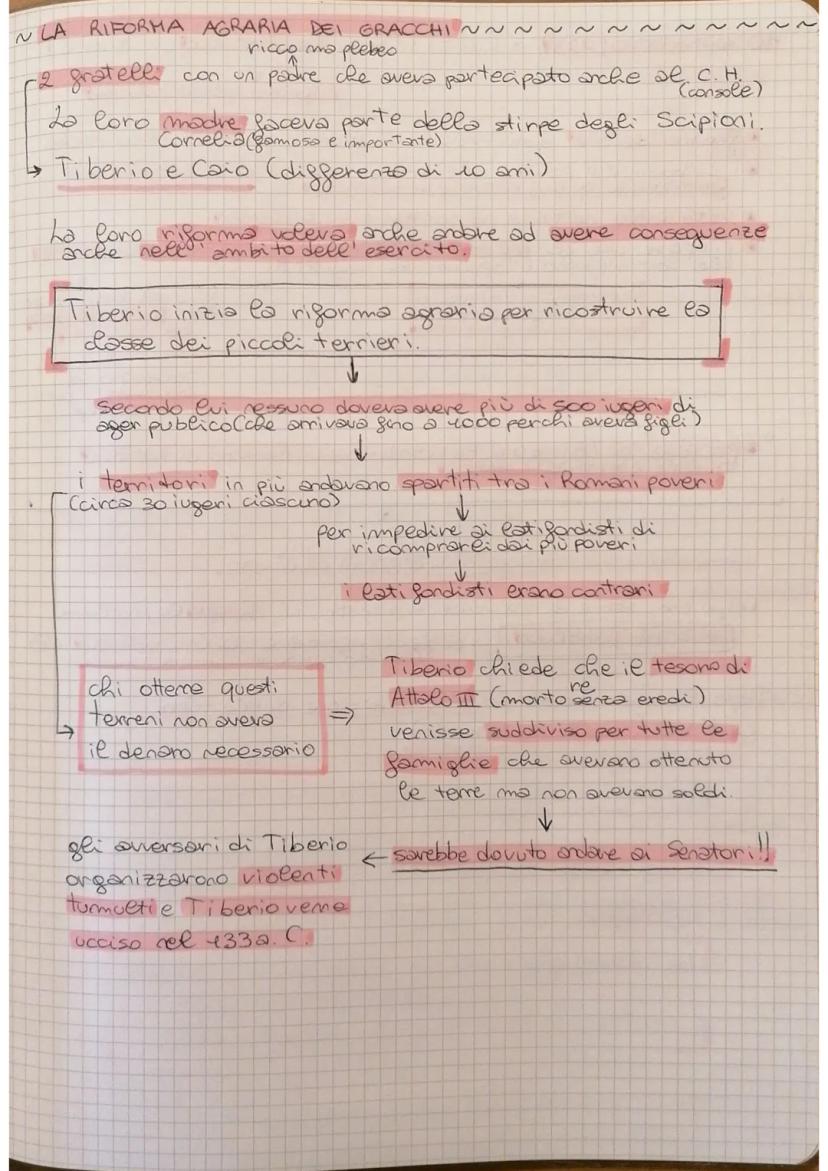 ~ LA RIFORMA AGRARIA DEI GRACCHI ~ ~ ~ ~ ~ ~ ~ ~ ~ ~ ~ ~ ~ ~
ricco ma plebeo
2 fratelli con un padre che aveva partecipato anche al C. H.
(console)
La loro madre faceva parte della stirpe degli Scipioni.
Cornelia (famosa e importante)
→ Tiberio e Caio (differenza di 10 anni)
La loro riforma voleva anche andare ad avere conseguenze
anche nell' ambito dell' esercito.
Tiberio inizia la riforma agraria per ricostruire la
classe dei piccoli terrieri.
↓
secondo lui nessuno doveva avere più di 500 iugeri di
ager publico (che arrivava fino a 1000 perchi aveva figli)
↓
i territori in più andavano spartiti tra i Romani poveri
(circa 30 iugeri ciascuno)
↓
per impedire ai latifondisti di
ricomprarli dai più poveri
↓
i latifondisti erano contrari
chi ottenne questi
terreni non aveva
il denaro necessario
⇒
Tiberio chiede che il tesoro di
Attalo III (morto re senza eredi)
venisse suddiviso per tutte le
famiglie che avevano ottenuto
le terre ma non avevano soldi.
↓
← sarebbe dovuto andare ai Senatori!!
gli avversari di Tiberio
organizzarono violenti
tumulti e Tiberio venne
ucciso nel 133 a. C.